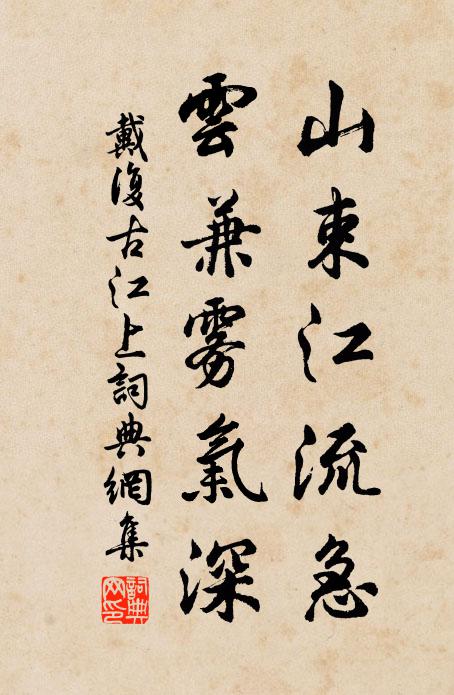 山東江流急
雲兼雾氣深
戴復古江上詞典網集
詞典
网印